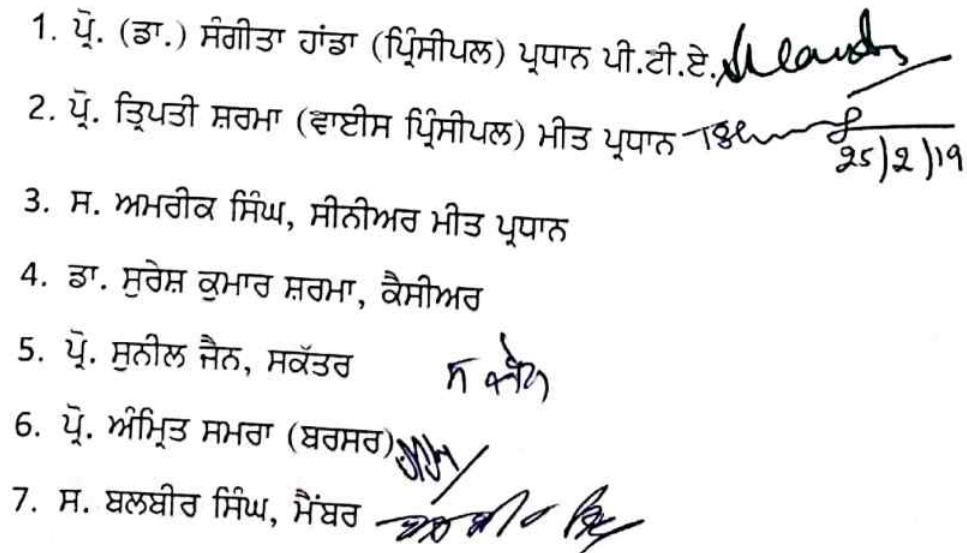 1. ਪ੍ਰੋ. (ਡਾ.) ਸੰਗੀਤਾ ਹਾਂਡਾ (ਪ੍ਰਿੰਸੀਪਲ) ਪ੍ਰਧਾਨ ਪੀ.ਟੀ.ਏ.
2. ਪ੍ਰੋ. ਤ੍ਰਿਪਤੀ ਸ਼ਰਮਾ (ਵਾਈਸ ਪ੍ਰਿੰਸੀਪਲ) ਮੀਤ ਪ੍ਰਧਾਨ
25/2/19
3. ਸ. ਅਮਰੀਕ ਸਿੰਘ, ਸੀਨੀਅਰ ਮੀਤ ਪ੍ਰਧਾਨ
4. ਡਾ. ਸੁਰੇਸ਼ ਕੁਮਾਰ ਸ਼ਰਮਾ, ਕੈਸੀਅਰ
5. ਪ੍ਰੋ. ਸੁਨੀਲ ਜੈਨ, ਸਕੱਤਰ
6. ਪ੍ਰੋ. ਅੰਮ੍ਰਿਤ ਸਮਰਾ (ਬਰਸਰ)
7. ਸ. ਬਲਬੀਰ ਸਿੰਘ, ਮੈਂਬਰ